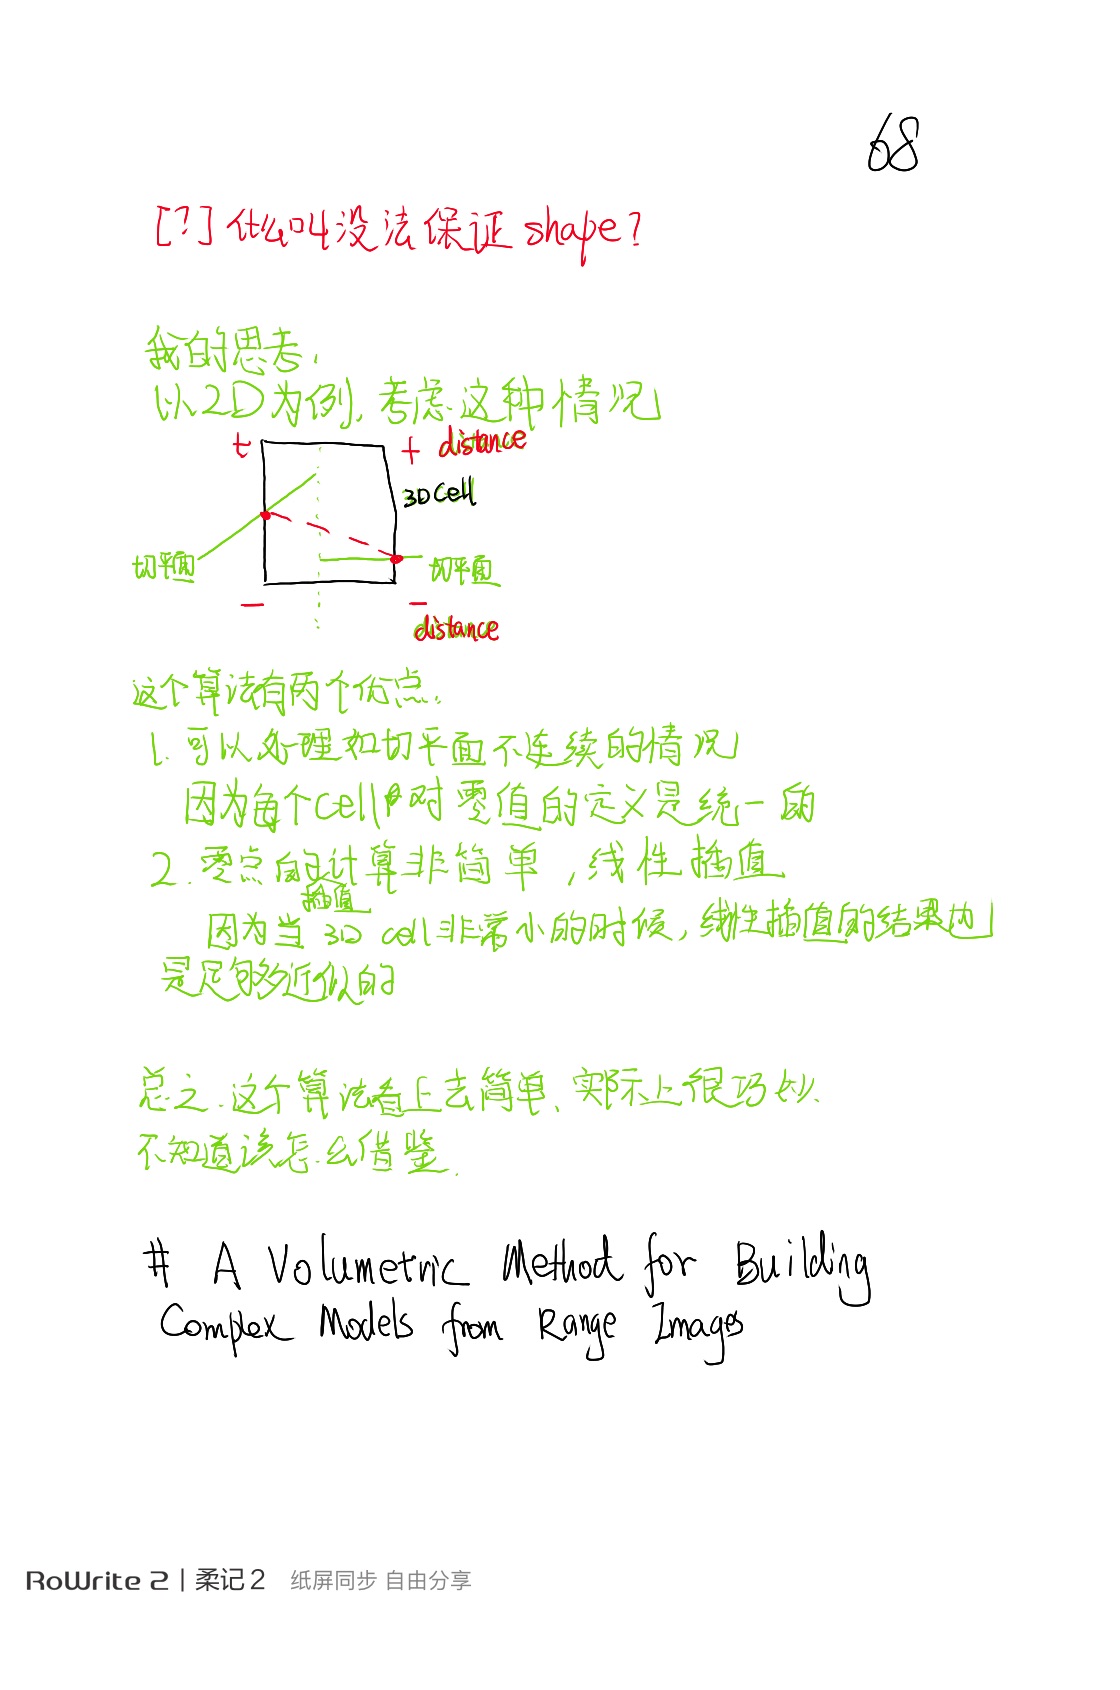 68
[?] 什么叫没法保证 shape?
我的思考.
以2D为例, 考虑这种情况
+ + distance
3D cell
切平面 切平面
- -
distance
这个算法有两个优点.
1. 可以处理如切平面不连续的情况
因为每个cell 对零值的定义是统一的
2. 零点的计算非简单, 线性插值
插值
因为当 3D cell 非常小的时候, 线性插值的结果也
是足够近似的
总之. 这个算法看上去简单、实际上很巧妙、
不知道该怎么借鉴.
# A Volumetric Method for Building
Complex Models from Range Images
RoWrite 2 | 柔记 2 纸屏同步 自由分享